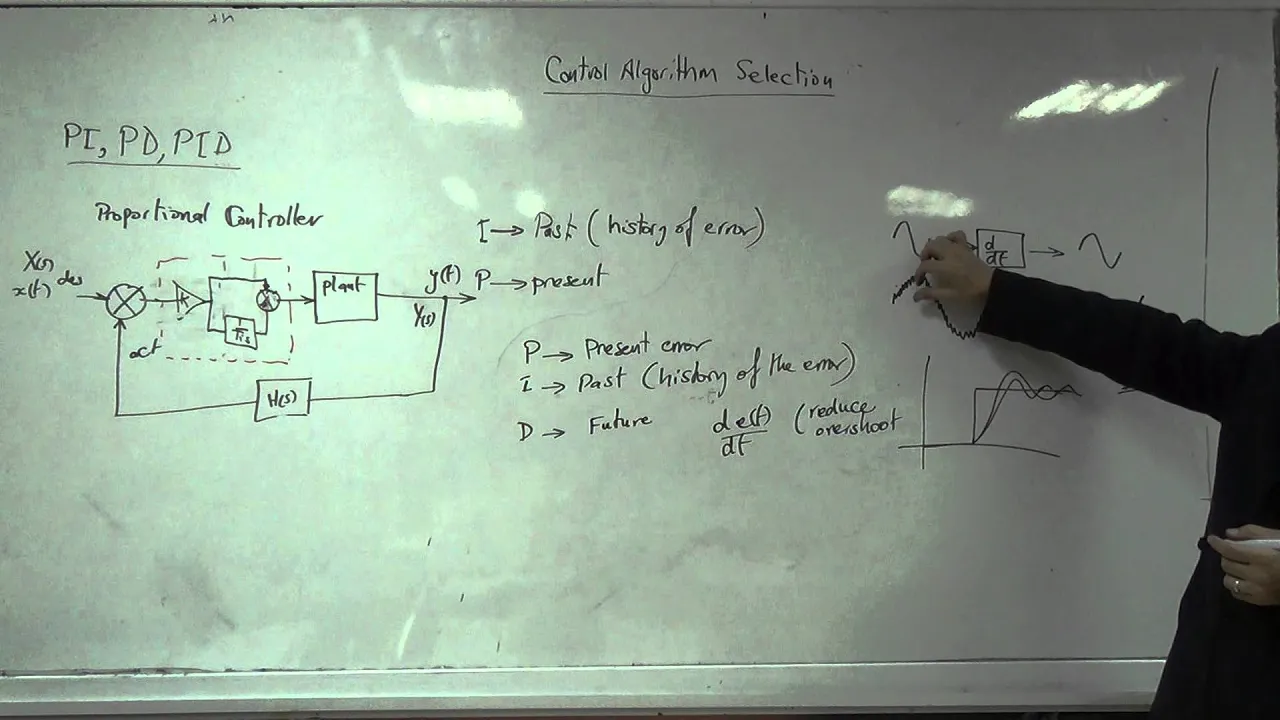 Control Algorithm Selection
PI, PD, PID
Proportional Controller
X(s)
x(t) des
act
K
1
Tis
plant
y(t)
Y(s)
H(s)
I → Past (history of error)
P → present
P → Present error
I → Past (history of the error)
D → Future de(t)/dt (reduce
overshoot
d/dt